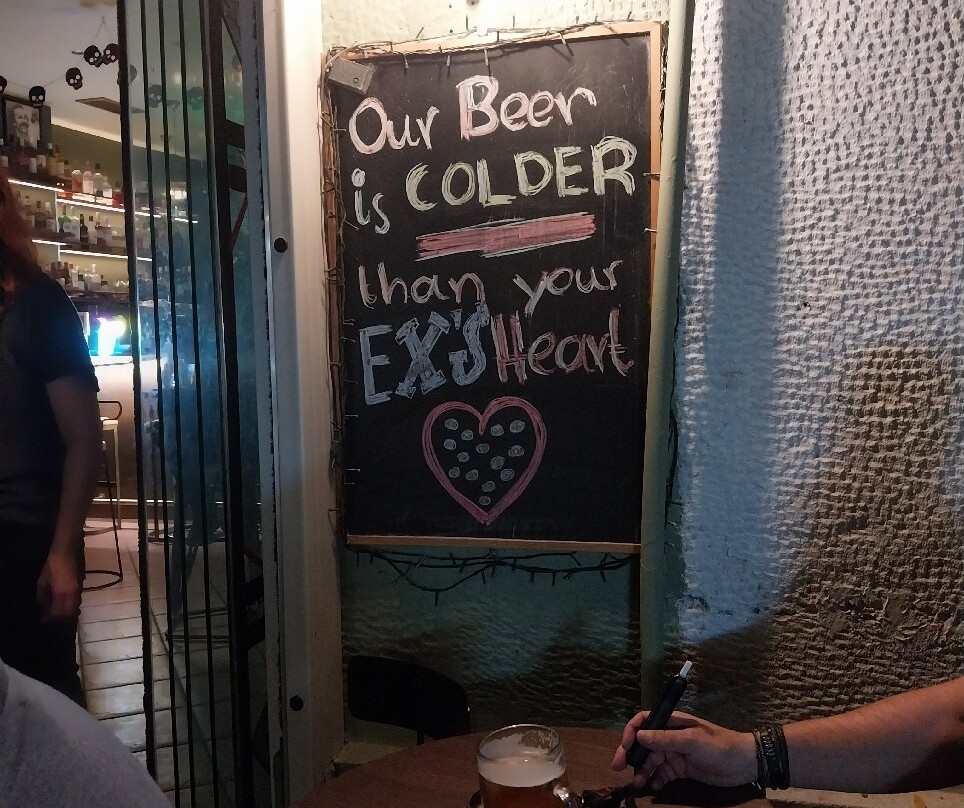 Our Beer
is COLDER
than your
EX'S Heart